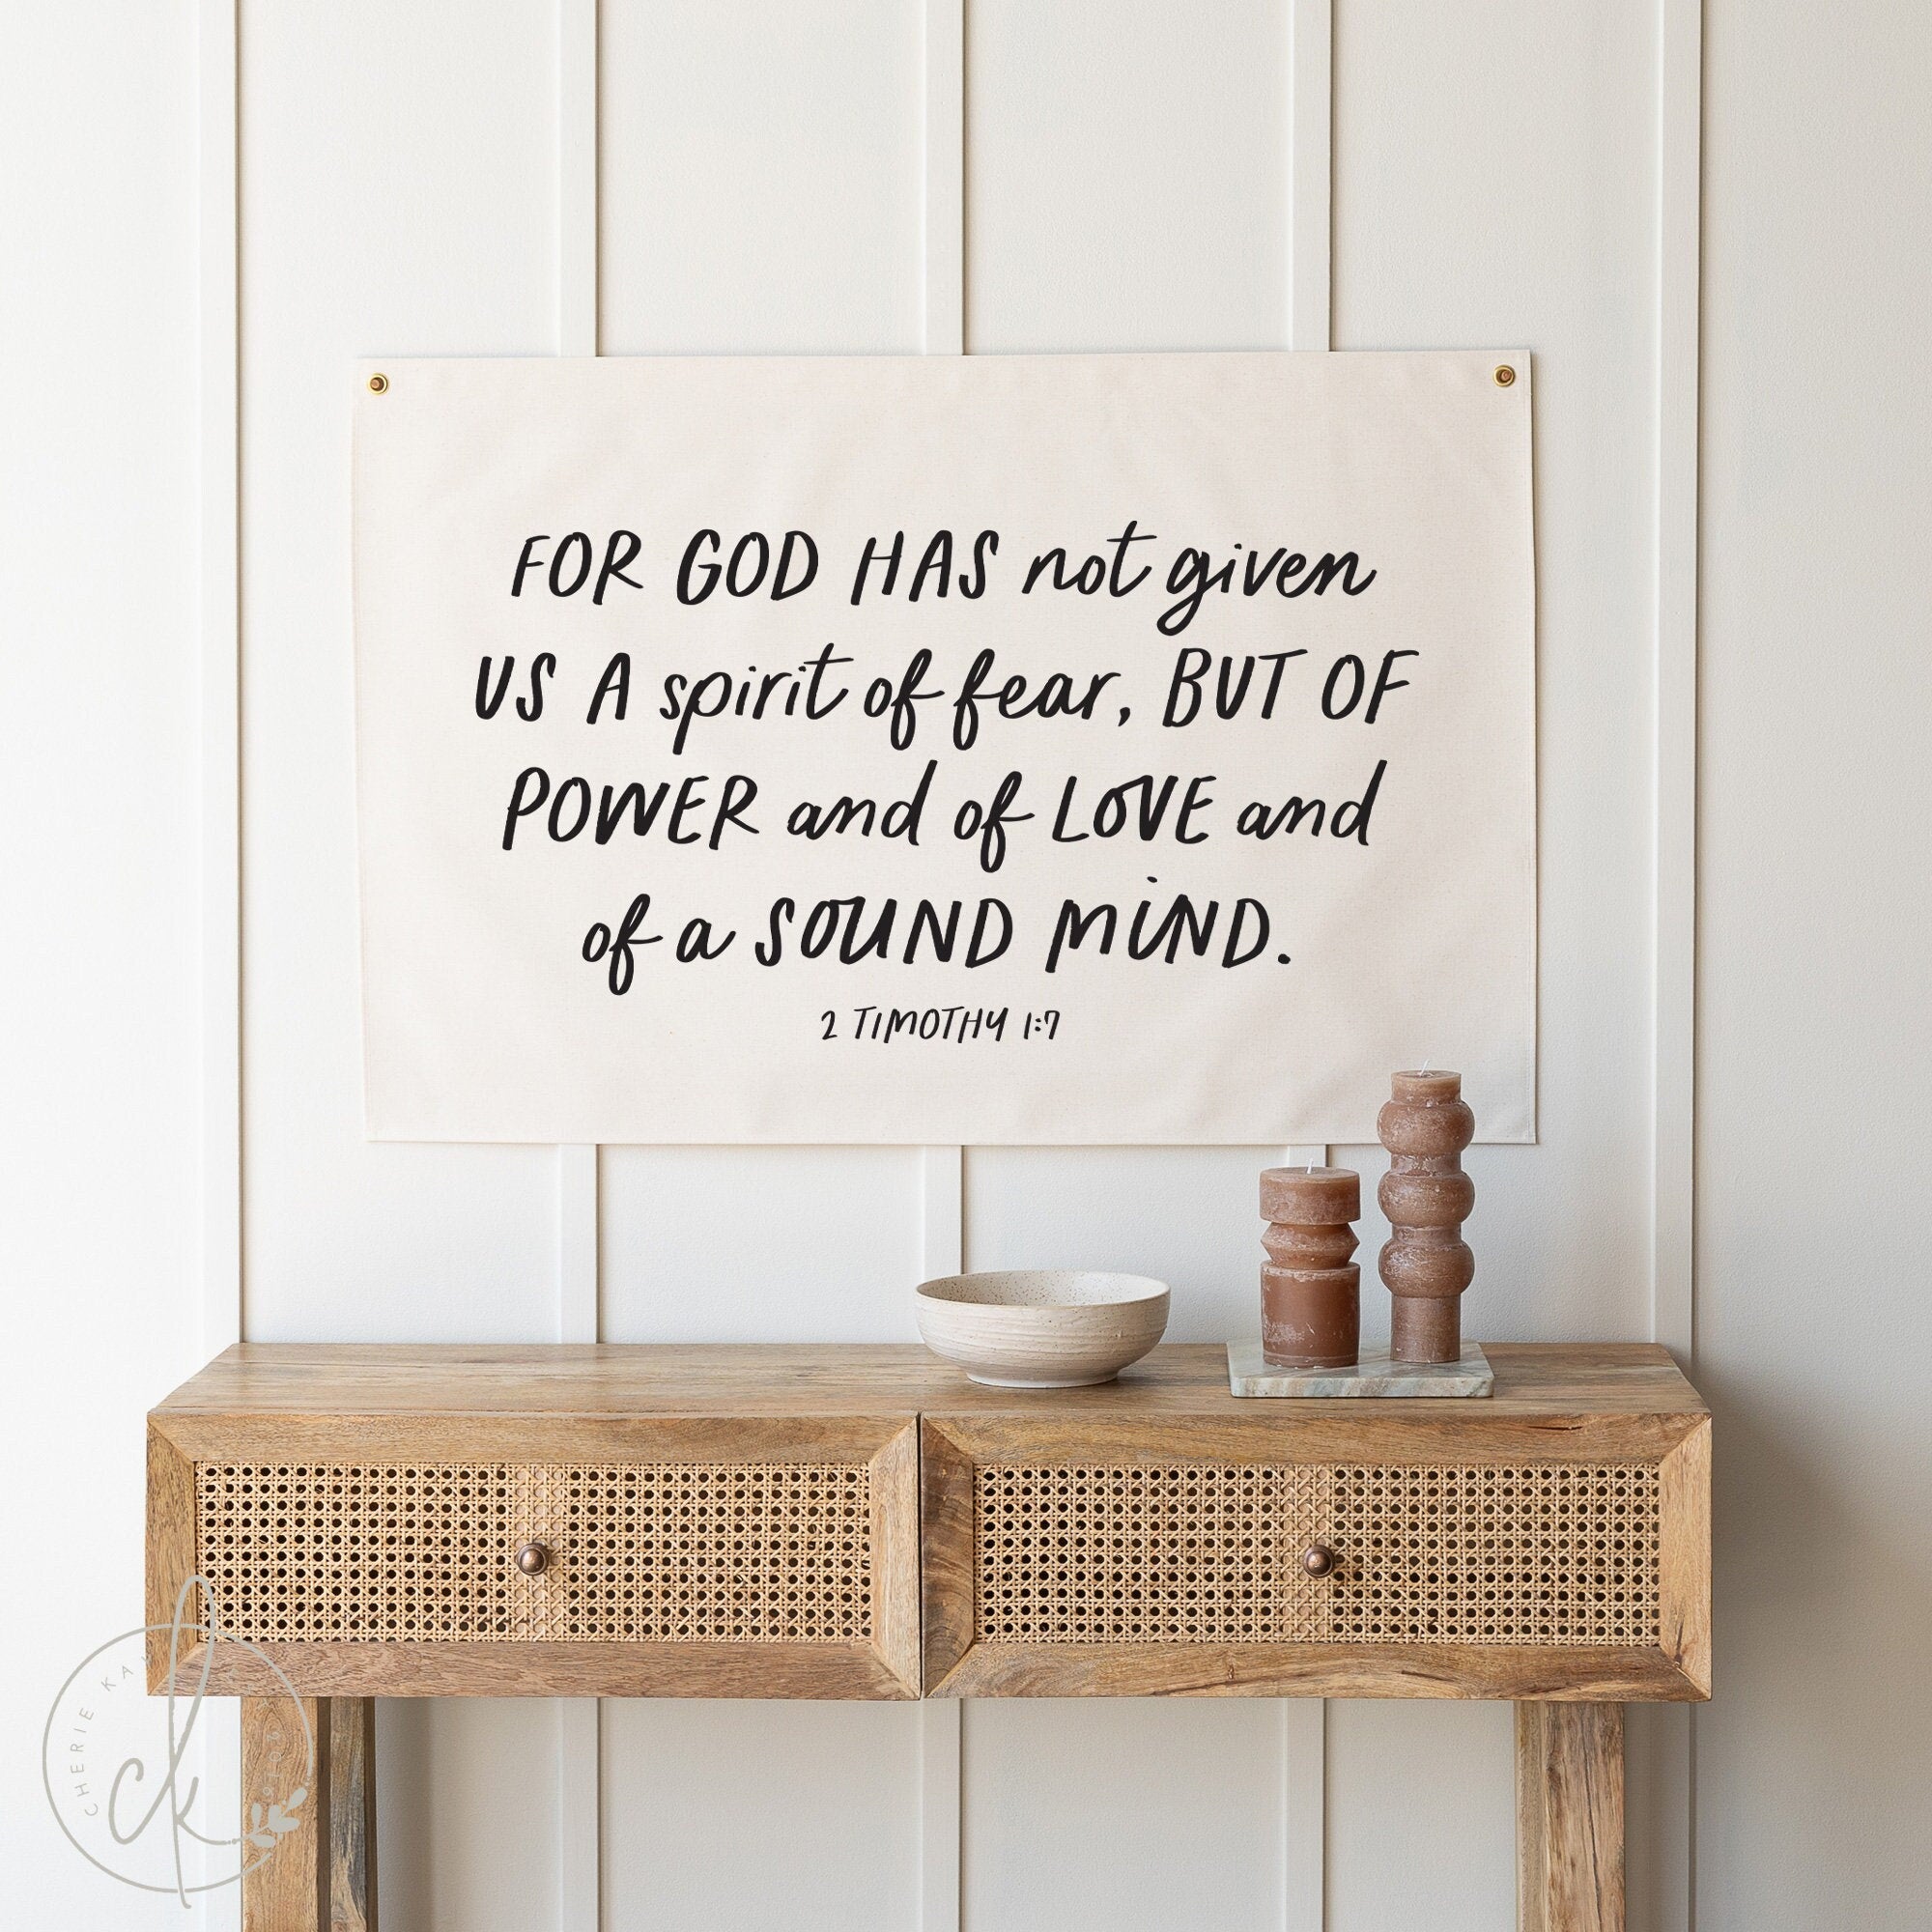 FOR GOD HAS not given
US A spirit of fear, BUT OF
POWER and of LOVE and
of a SOUND MiND.
2 TIMOTHY 1:7
CHERIE KAY
ck
2010